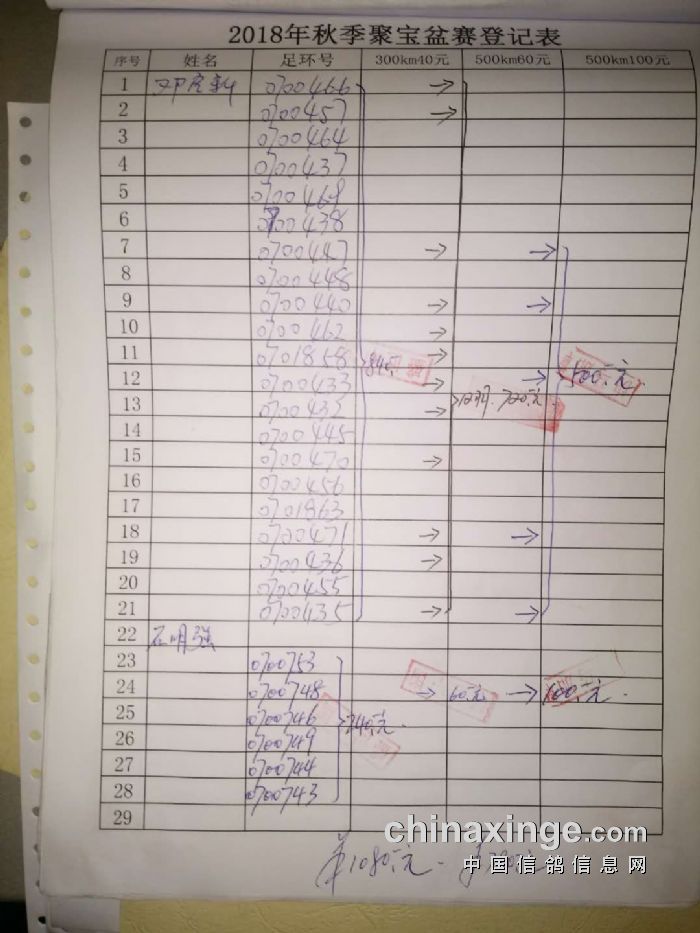 2018年秋季聚宝盆赛登记表
序号 姓名 足环号 300km40元 500km60元 500km100元
1 0700466 → →
2 0700457 →
3 0700464
4 0700437
5 0700469
6 0700438
7 0700447 → →
8 0700448
9 0700440 → →
10 0700462 →
11 0701858 → 840元
12 0700433 → → 500元
13 0700432 → 720元
14 0700445
15 0700470 →
16 0700456
17 0701863
18 0700471 → →
19 0700436 →
20 0700455
21 0700435 → →
22 石明强
23 0700753
24 0700748 → 60元 → 100元
25 0700746 240元
26 0700749
27 0700744
28 0700743
29
1080元
chinaxinge.com
中国信鸽信息网